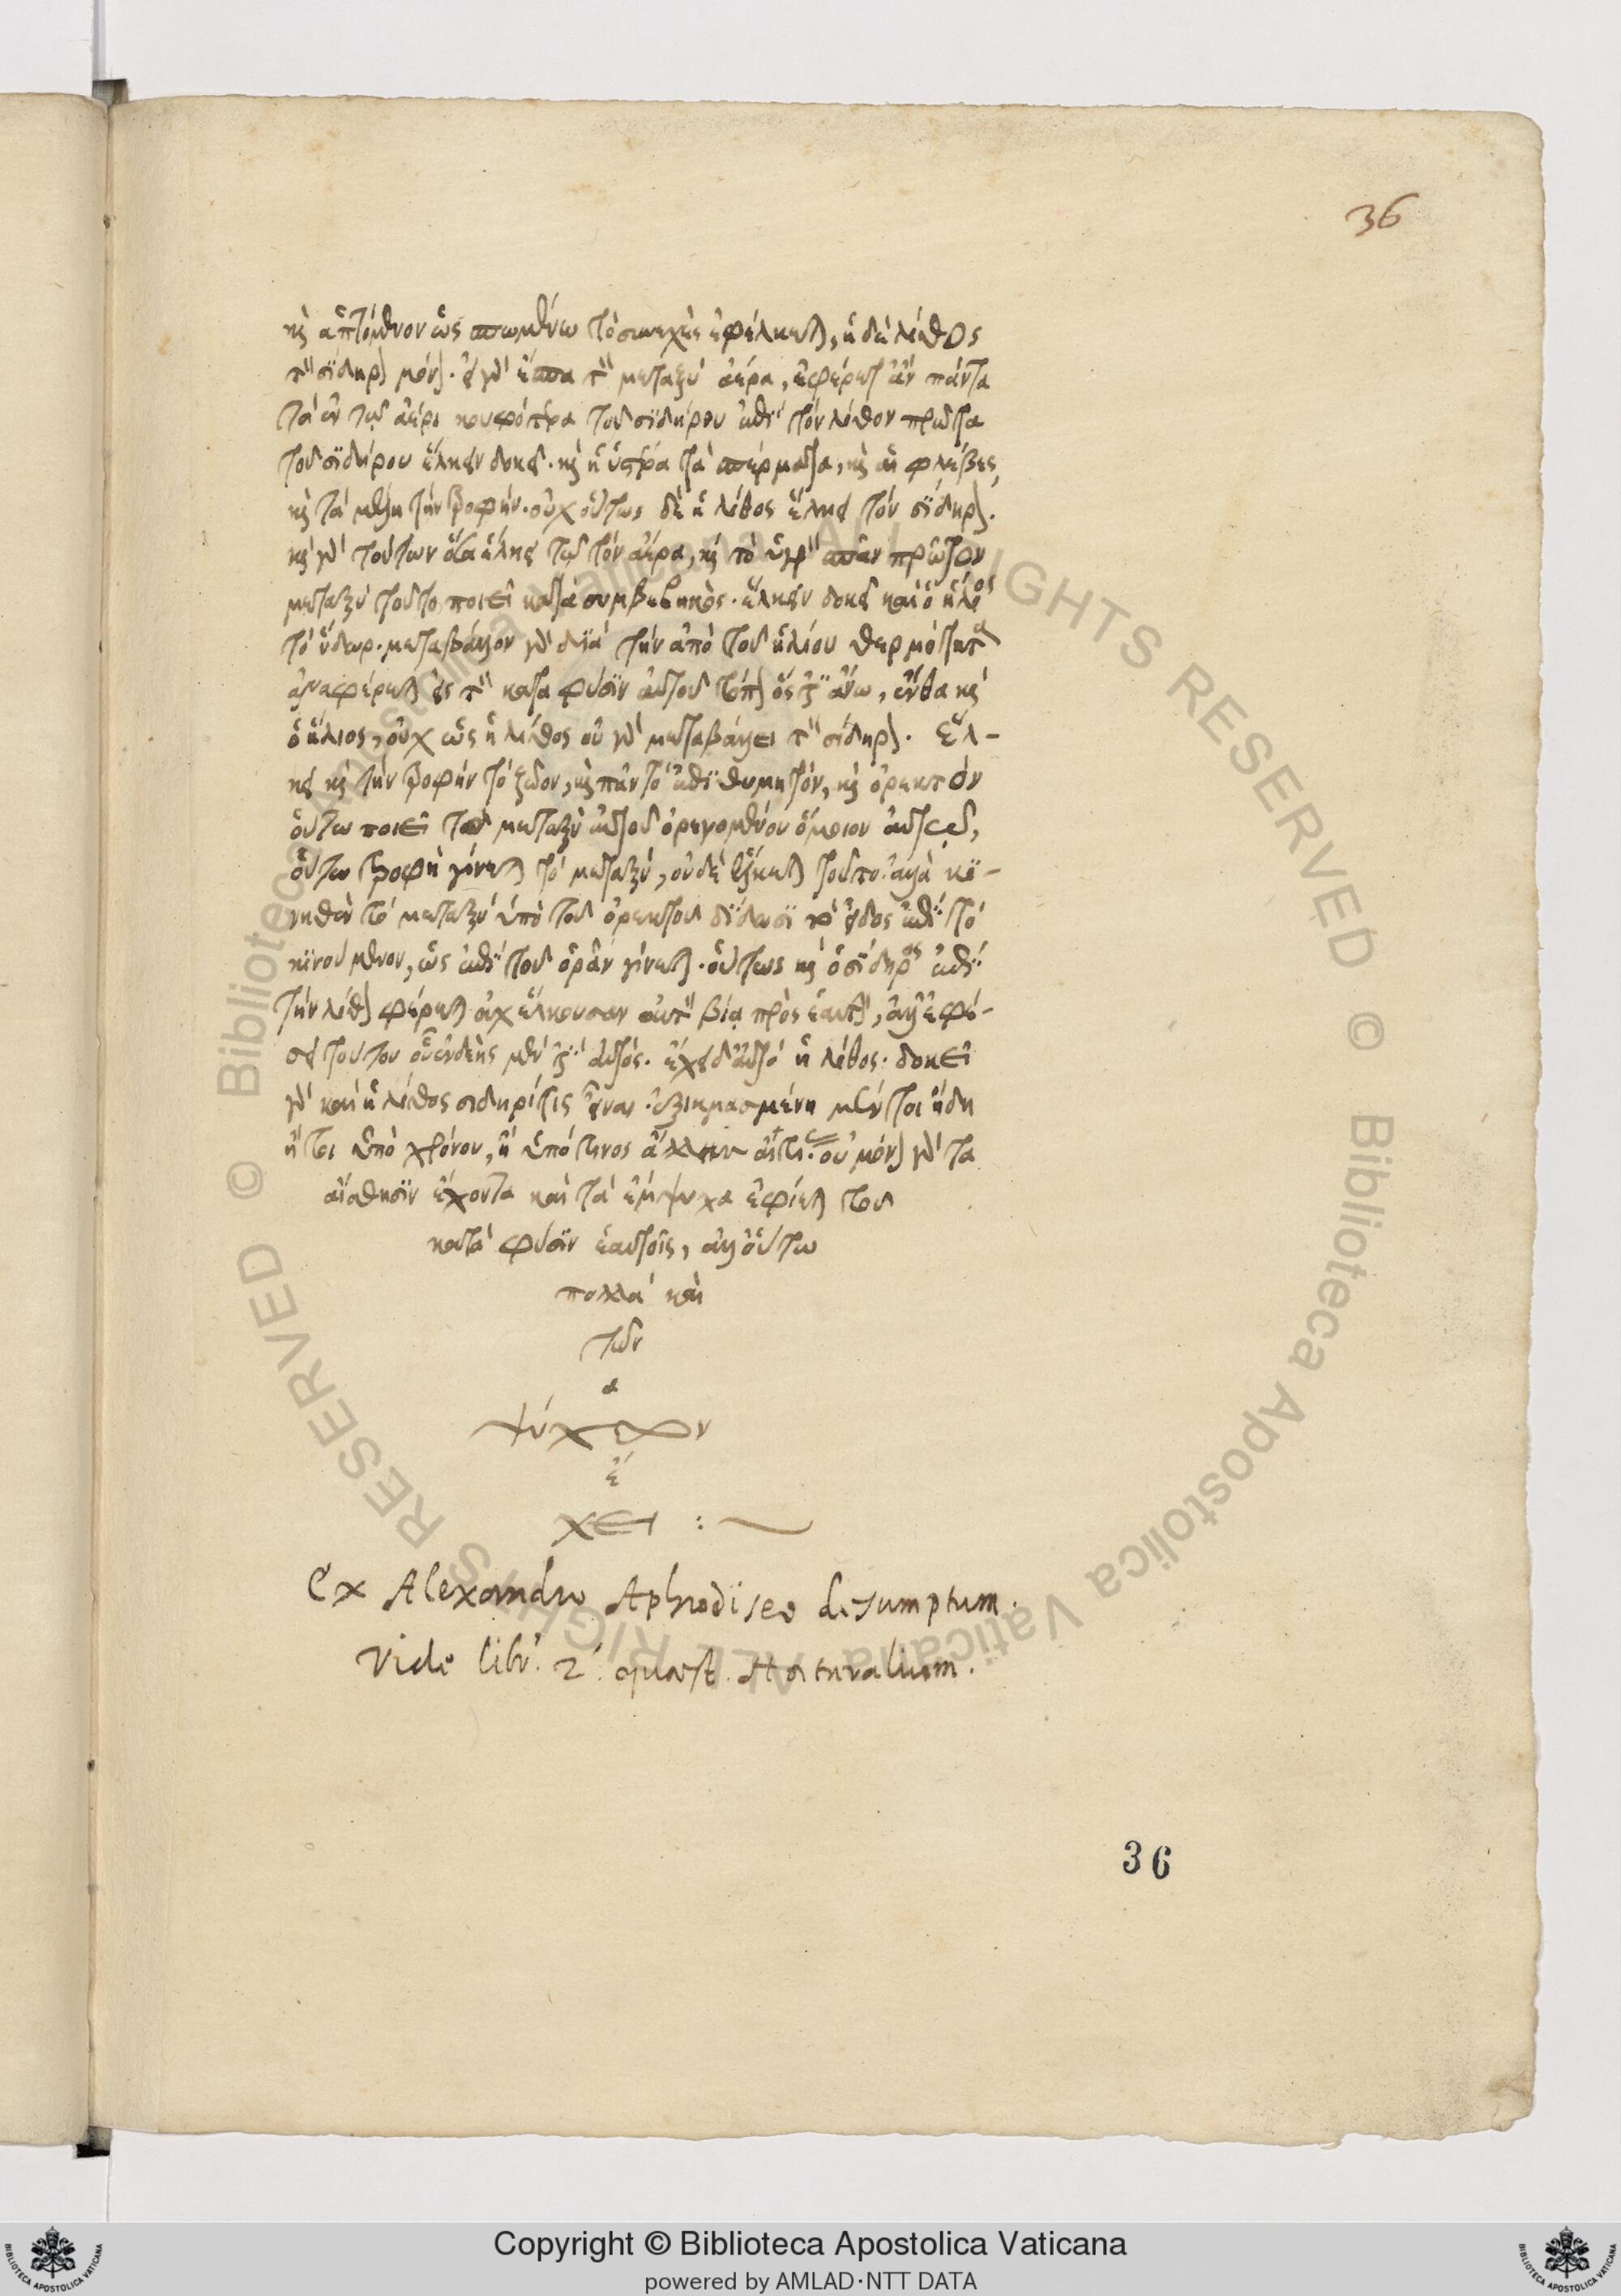 36
καὶ ἁπτόμενον ὡς σπωμένω τὸ συνεχὲς ἐφέλκεται, ἡ δὲ λίθος
τὸν σίδηρον μόνον. εἰ γὰρ ἔσπα τὸν μεταξὺ ἀέρα, ἐφέρετ' ἂν πάντα
τὰ ἐν τῷ ἀέρι κουφότερα τοῦ σιδήρου ἐπὶ τὸν λίθον πρῶτα
τοῦ σιδήρου ἕλκειν δοκεῖ. καὶ ἡ ὑστέρα τὰ σπέρματα, καὶ αἱ φλέβες,
καὶ τὰ μέλη τὴν τροφήν. οὐχ οὕτως δὲ ἡ λίθος ἕλκει τὸν σίδηρον.
καὶ γὰρ τούτων ὅσα ἕλκει τῷ τὸν ἀέρα, καὶ τὸ ὑγρὸν σπᾶν πρῶτον
μεταξὺ τοῦτο ποιεῖ κατὰ συμβεβηκός. ἕλκειν δοκεῖ καὶ ὁ ἥλιος
τὸ ὕδωρ. μεταβάλλον γὰρ διὰ τὴν ἀπὸ τοῦ ἡλίου θερμότητα
ἀναφέρεται εἰς τὸν κατα φύσιν αὐτοῦ τόπον ὅς ἐστιν ἄνω, ἔνθα καὶ
ὁ ἥλιος, οὐχ ὡς ἡ λίθος οὐ γὰρ μεταβάλλει τὸν σίδηρον. ἕλ-
κει καὶ τὴν τροφὴν τὸ ζῶον, καὶ πᾶν τὸ ἐπιθυμητόν, καὶ ὀρεκτὸν
οὕτω ποιεῖ τοῦ μεταξὺ αὐτοῦ ὀρεγομένου ὅμοιον αὐτῷ,
οὕτω τροφὴ γίνεται τὸ μεταξύ, οὐδὲ ἕλκεται τοῦτο. ἀλλὰ κι-
νηθὲν τὸ μεταξὺ ὑπὸ τοῦ ὀρεκτοῦ δίδωσι τὸ εἶδος ἐπὶ τὸ
κινούμενον, ὡς ἐπὶ τοῦ ὁρᾶν γίνεται. οὕτως καὶ ὁ σίδηρος ἐπὶ
τὴν λίθον φέρεται οὐχ ἕλκουσαν αὐτὸν βίᾳ πρὸς ἑαυτὴν, ἀλλ' ἐφέ-
σει τούτου οὗ ἐνδεὴς μέν ἐστιν αὐτός. ἔχει δ' αὐτὸ ἡ λίθος. δοκεῖ
γὰρ καὶ ἡ λίθος σιδηρίτις εἶναι. ἐξικμασμένη μέντοι ἤδη
ἤτοι ὑπὸ χρόνου, ἢ ὑπό τινος ἄλλην αἰτίαν. οὐ μόνον γὰρ τα
αἴσθησιν ἔχοντα καὶ τὰ ἔμψυχα ἐφίεται τοῦ
κατὰ φύσιν ἑαυτοῖς, ἀλλ' οὕτω
πολλὰ καὶ
τῶν
ἀ
ψύχων
ἔ
χει : ~
Ex Alexandro Aphrodiseo desumptum.
Vide libr. 2. quæst. Naturalium.
36
© Biblioteca Apostolica Vaticana ALL RIGHTS RESERVED © Biblioteca Apostolica Vaticana ALL RIGHTS RESERVED
Copyright © Biblioteca Apostolica Vaticana
powered by AMLAD·NTT DATA